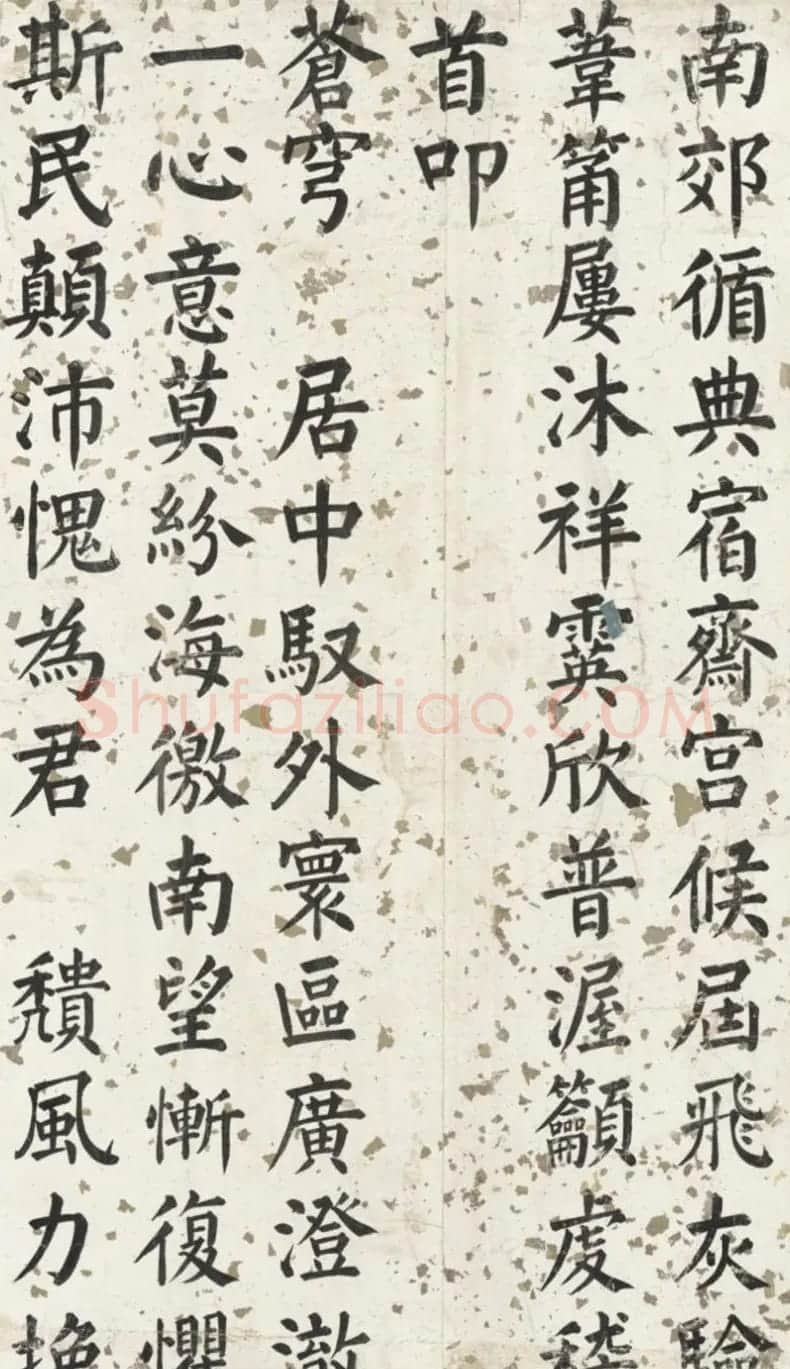 南郊循典宿齋宮候屆飛灰
葦籥屢沐祥霙欣普渥籲虔稽
首叩
蒼穹　居中馭外寰區廣澄澈
一心意莫紛海徼南望慚復懼
斯民顛沛愧為君　頹風力挽
Shufaziliao.COM